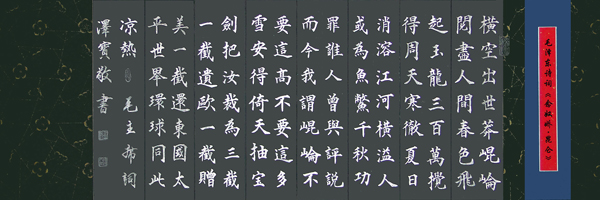 毛澤东诗词《念奴娇·昆仑》
橫空出世莽崐崙
閱盡人間春色飛
起玉龍三百萬攪
得周天寒徹夏日
消溶江河橫溢人
或為魚鱉千秋功
罪誰人曾與評說
而今我謂崐崙不
要這高不要這多
雪安得倚天抽宝
劍把汝裁為三截
一截遺歐一截贈
美一截還東國太
平世界環球同此
凉熱 毛主席詞
澤賓敬書